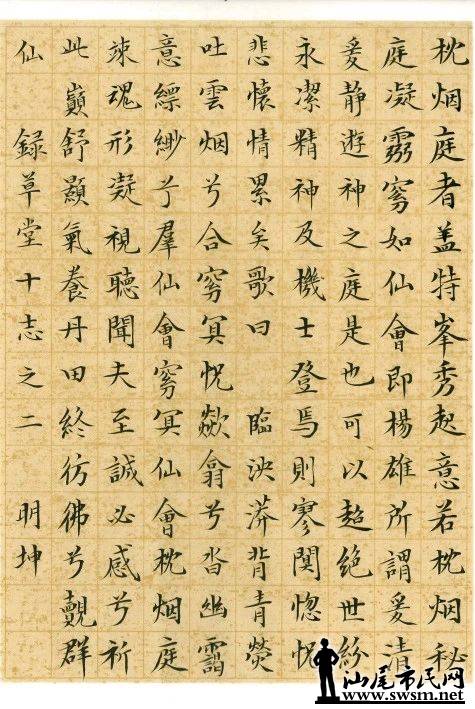 枕烟庭者盖特峯秀起意若枕烟秘
庭凝霛窅如仙會即楊雄所謂爰清
爰静遊神之庭是也可以超绝世紛
永潔精神及機士登焉則寥闃惚怳
悲懷情累矣歌曰 臨泱漭背青熒
吐雲烟兮合窅冥怳欻翕兮沓幽靄
意縹緲兮羣仙會窅冥仙會枕烟庭
竦魂形凝視聽聞夫至誠必感兮祈
此巔舒顥氣養丹田終彷彿兮覿群
仙 録草堂十志之二 明坤
汕尾市民网
www.swsm.net